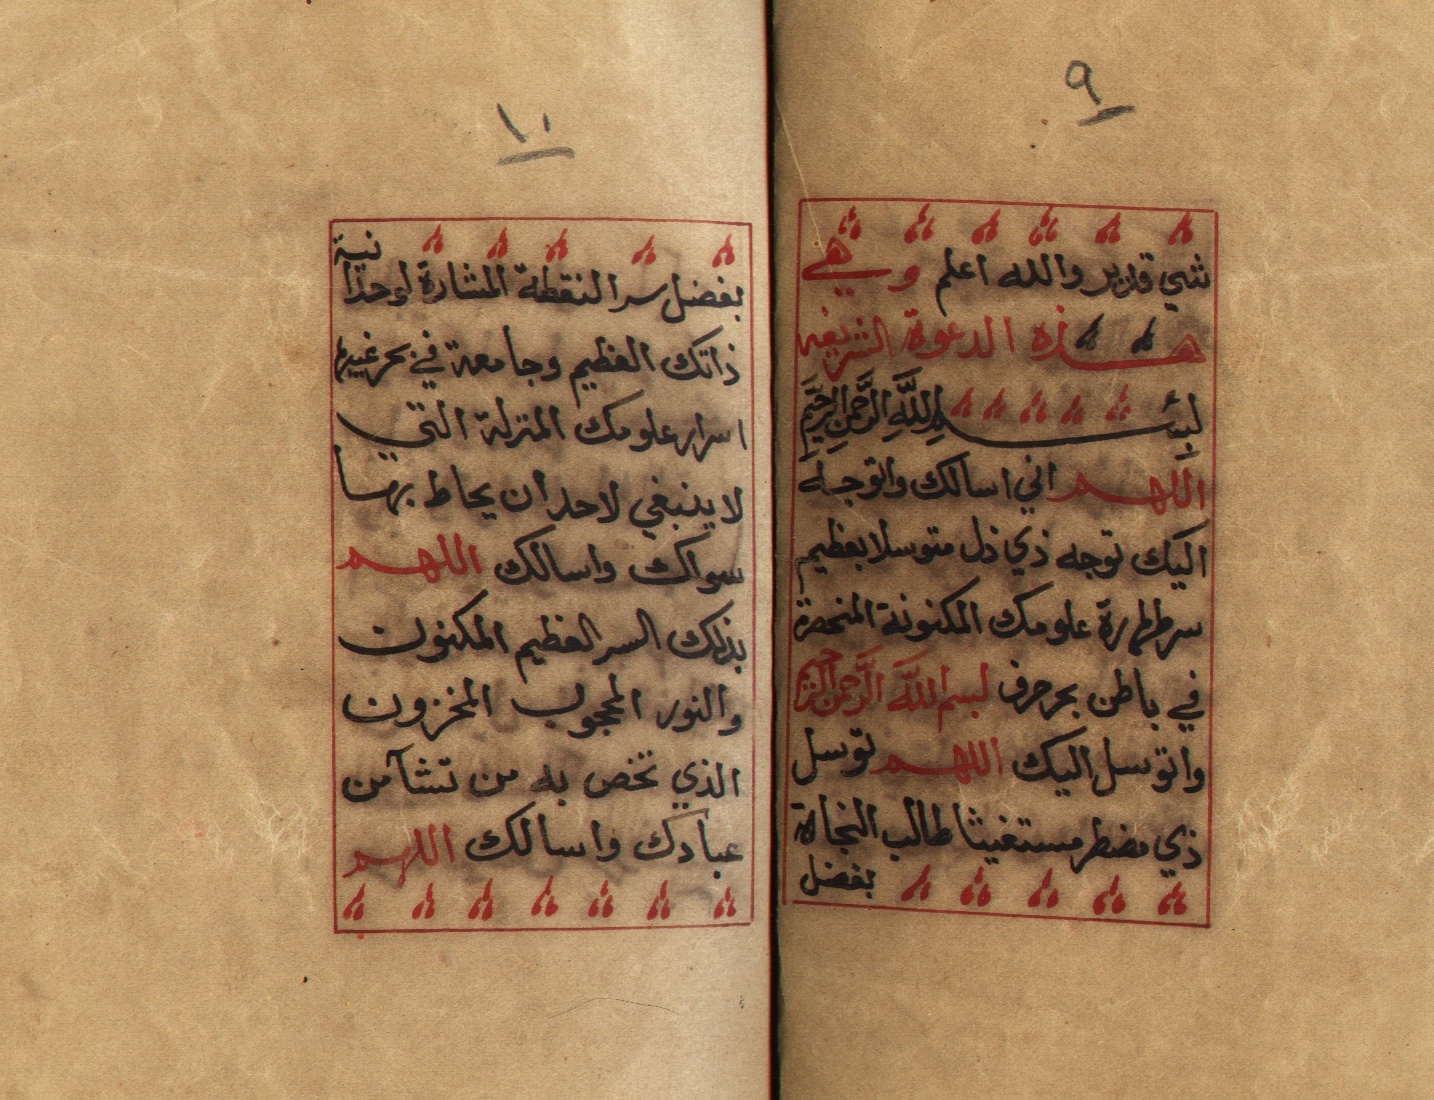 ٩
شي قدير والله اعلم وهي
هذه الدعوة الشريفه
بسم الله الرحمن الرحيم
اللهم اني اسالك واتوجه
اليك توجه ذي ذل متوسلا بعظيم
سر طهارة علومك المكنونة المنحصرة
في باطن بحر حرف بسم الله الرحمن الرحيم
واتوسل اليك اللهم توسل
ذي مضطر مستغيثا طالب النجاة
بفضل
١٠
بفضل سر النقطة المشارة لوحدانية
ذاتك العظيم وجامعة في بحر غيبها
اسرار علومك المنزلة التي
لا ينبغي لاحد ان يحاط بها
سواك واسالك اللهم
بذلك السر العظيم المكنون
والنور المحجوب المخزون
الذي تخص به من تشآ من
عبادك واسالك اللهم